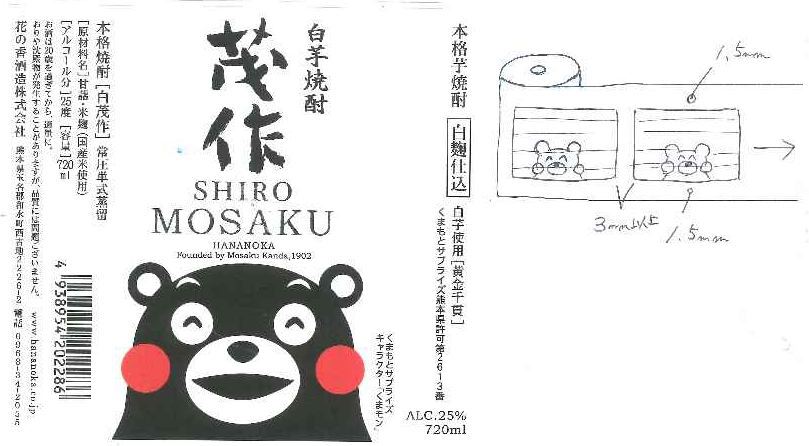 本格芋焼酎 白麹仕込 白芋使用［黄金千貫］
くまもとサプライズ熊本県許可第2613番
ALC.25%
720ml
白芋焼酎
茂作
SHIRO
MOSAKU
HANANOKA
Founded by Mosaku Kanda,1902
くまもとサプライズ
キャラクター「くまモン」
本格焼酎［白茂作］常圧単式蒸留
［原材料名］甘藷・米麹（国産米使用）
［アルコール分］25度［容量］720ml
お酒は20歳を過ぎてから、適量に。
おりや沈殿物が発生することがありますが、品質には問題ございません。 www.hananoka.co.jp
花の香酒造株式会社 熊本県玉名郡和水町西吉地2226-2 電話 0968-34-2055
4 938954 202286
1.5mm
3mm以上
1.5mm